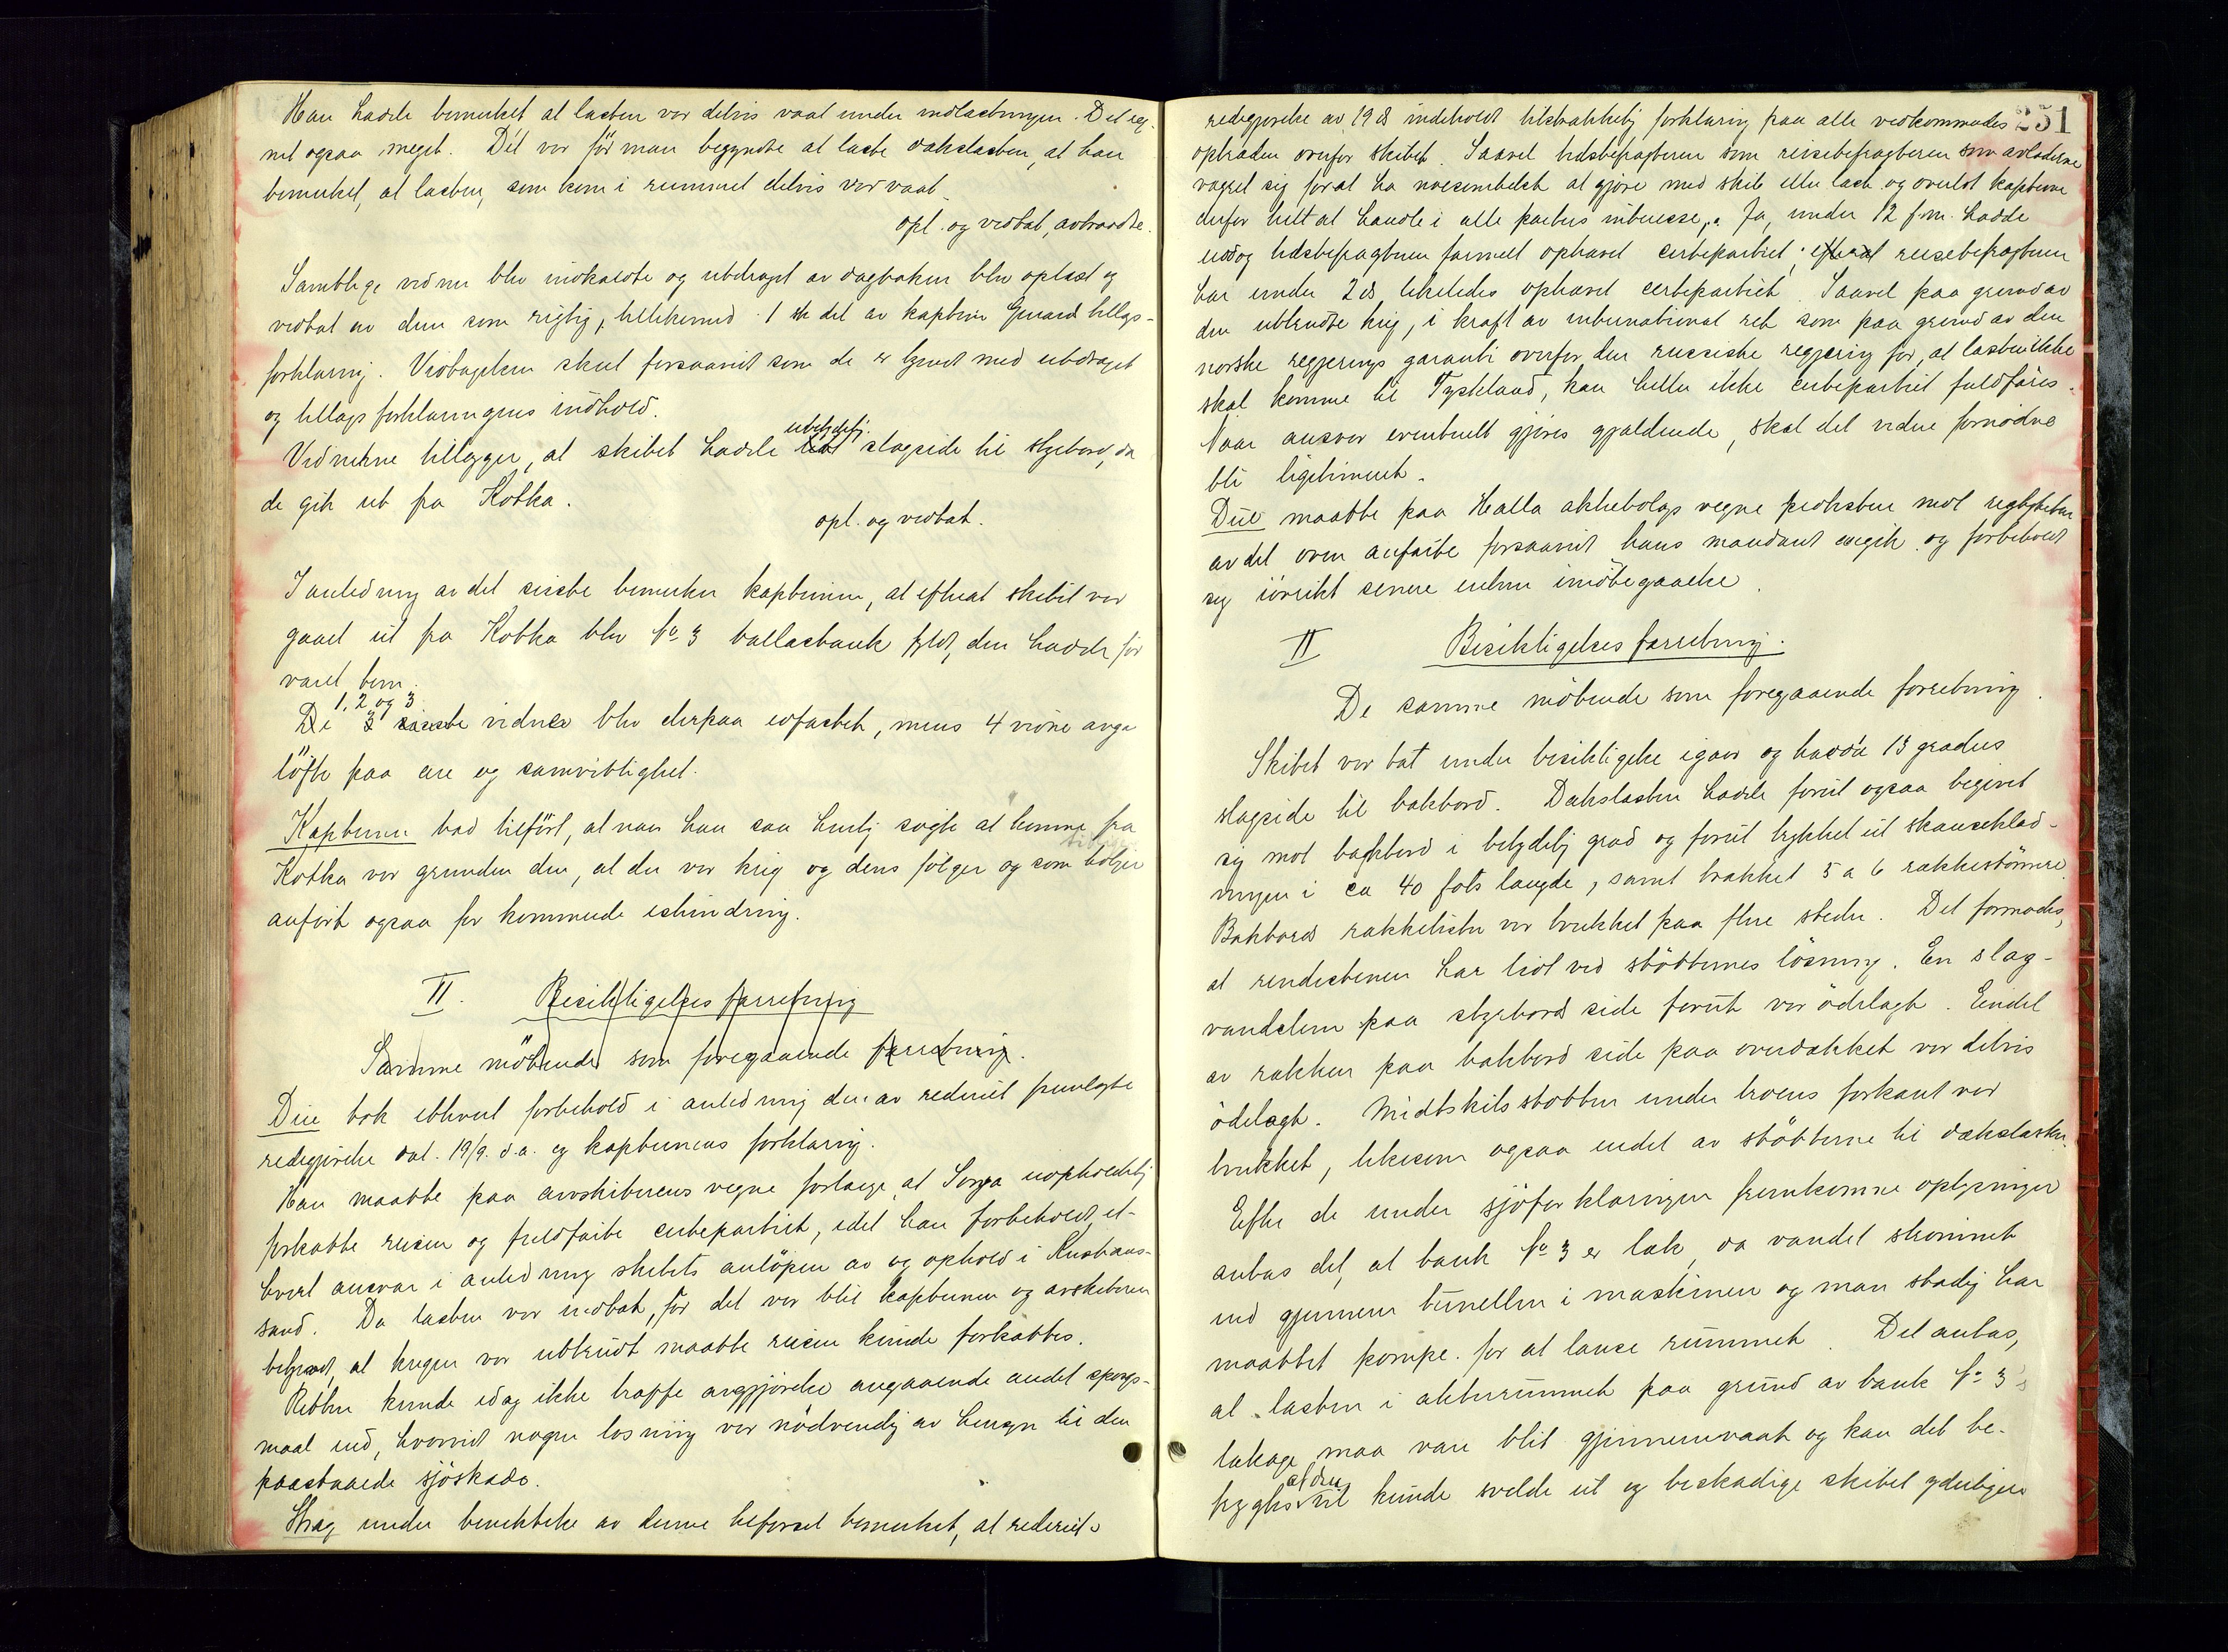 Han hadde bemerket at lasten var delvis vaat under indlastningen. Det reg-
net ogsaa meget. Det var før man begyndte at laste dækslasten, at han
bemerket, at lasten, som kom i rummet delvis var vaat.
opl. og vedtat, avtraadte.
Samtlige vidner blev indkaldte og utdraget av dagboken blev oplæst og
vedtat av dem som rigtig, tillikemed 1 stk del av kaptein tillægs-
forklaring. Vidtagelsen skeet forsaavidt som de er kjendt med utdraget
og tillægsforklaringens indhold.
Vidnerne tillægger, at skibet hadde ubetydelig slagside til styrbord, da
de gik ut fra Kotka.
opl. og vedtat.
I anledning av det sidste bemerker kapteinen, at efterat skibet var
gaaet ut fra Kotka blev No 3 ballasttank fyldt, den hadde før
været tom.
1, 2 og 3
De 3 sidste vidner blev derpaa edfæstet, mens 4 vidne avga
løfte paa ære og samvittighet.
Kapteinen bad tilført, at naar han saa hurtig søgte at komme fra
Kotka var grunden den, at der var krig og dens følger og som tidligere
anført ogsaa for kommende ishindring.
II. Besiktigelses forretning
Samme møtende som foregaaende forretning.
Due tok ethvert forbehold i anledning den av rederiet fremlagte
redegjørelse dat. 19/9. d.a. og kapteinens forklaring.
Han maatte paa avskiberens vegne forlange, at uopholdelig
fortsatte reisen og fuldførte certepartiet, idet han forbeholdt et-
hvert ansvar i anledning skibets anløpen av og ophold i Kristians-
sand. Da lasten var indtat, før det var blit kapteinen og avskiberen
bekjendt, at krigen var utbrudt maatte reisen kunde fortsattes.
Retten kunde idag ikke træffe avgjørelse angaaende andet spørgs-
maal end, hvorvidt nogen losning var nødvendig av hensyn til den
paastaaede sjøskade.
Strag under benektelse av denne tilførsel bemerket, at rederiets
251
redegjørelse av 19 ds indeholdt tilstrækkelig forklaring paa alle vedkommendes
optræden overfor skibet. Saavel tidsbefragteren som reisebefragteren som avladerne
vægret sig for at ha noesomhelst at gjøre med skib eller last og overlot kapteinen
derfor helt at handle i alle parters interesse. Ja, under 12 f.m. hadde
endog tidsbefragteren formelt ophævet certepartiet; efterat reisebefragteren
har under 2 ds likeledes ophævet certepartiet. Saavel paa grund av
den utbrudte krig, i kraft av international ret som paa grund av den
norske regjerings garanti overfor den russiske regjering for, at lasten ikke
skal komme til Tyskland, kan heller ikke certepartiet fuldføres.
Naar ansvar eventuelt gjøres gjældende, skal det videre fornødne
bli legitimert.
Due maatte paa Halla aktiebolags vegne protestere mot rigtigheten
av det oven anførte forsaavidt hans mandant angik og forbeholdt
sig iøvrikt senere nærmere imøtegaaelse.
II Besiktigelses forretning.
De samme møtende som foregaaende forretning.
Skibet var tat under besiktigelse igaar og hadde 13 graders
slagside til bakbord. Dækslasten hadde forut ogsaa begivet
sig mot bakbord i betydelig grad og forut trykket ut skanseklæd-
ningen i ca 40 fots længde, samt brækket 5 a 6 rækkestøttere.
Bakbords rækkelister var brukket paa flere steder. Det formodes,
at rendestenen har lidt ved støtternes løsning. En slag-
vandslem paa styrbords side forut var ødelagt. Endel
av rækken paa bakbord side paa overdækket var delvis
ødelagt. Midtskibs støtten under broens forkant var
brukket, likesom ogsaa endel av støtterne til dækslasten.
Efter de under sjøforklaringen fremkomne oplysninger
antas det, at tank No 3 er læk, da vandet strømmet
ind gjennem tunellen i maskinen og man stadig har
maattet pumpe for at lænse rummet. Det antas,
at lasten i akterrummet paa grund av tank No 3's
lækage maa være blit gjennemvaat og kan det be-
frygtes at den vil kunde svelde ut og beskadige skibet yderligere